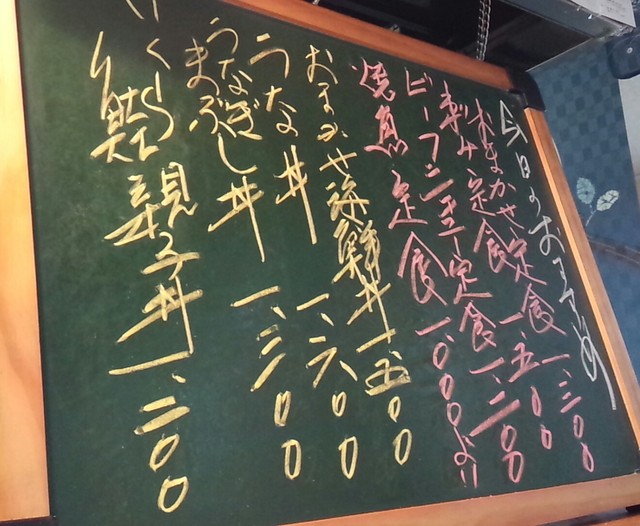 今日のおすすめ
おまかせ定食 一、三〇〇
刺身定食 一、五〇〇
ビーフシチュー定食 一、二〇〇
焼魚定食 一、〇〇〇より
おまかせ海鮮丼 一、五〇〇
うな丼 一、六〇〇
うなぎまぶし丼 一、三〇〇
いくら鮭親子丼 一、二〇〇